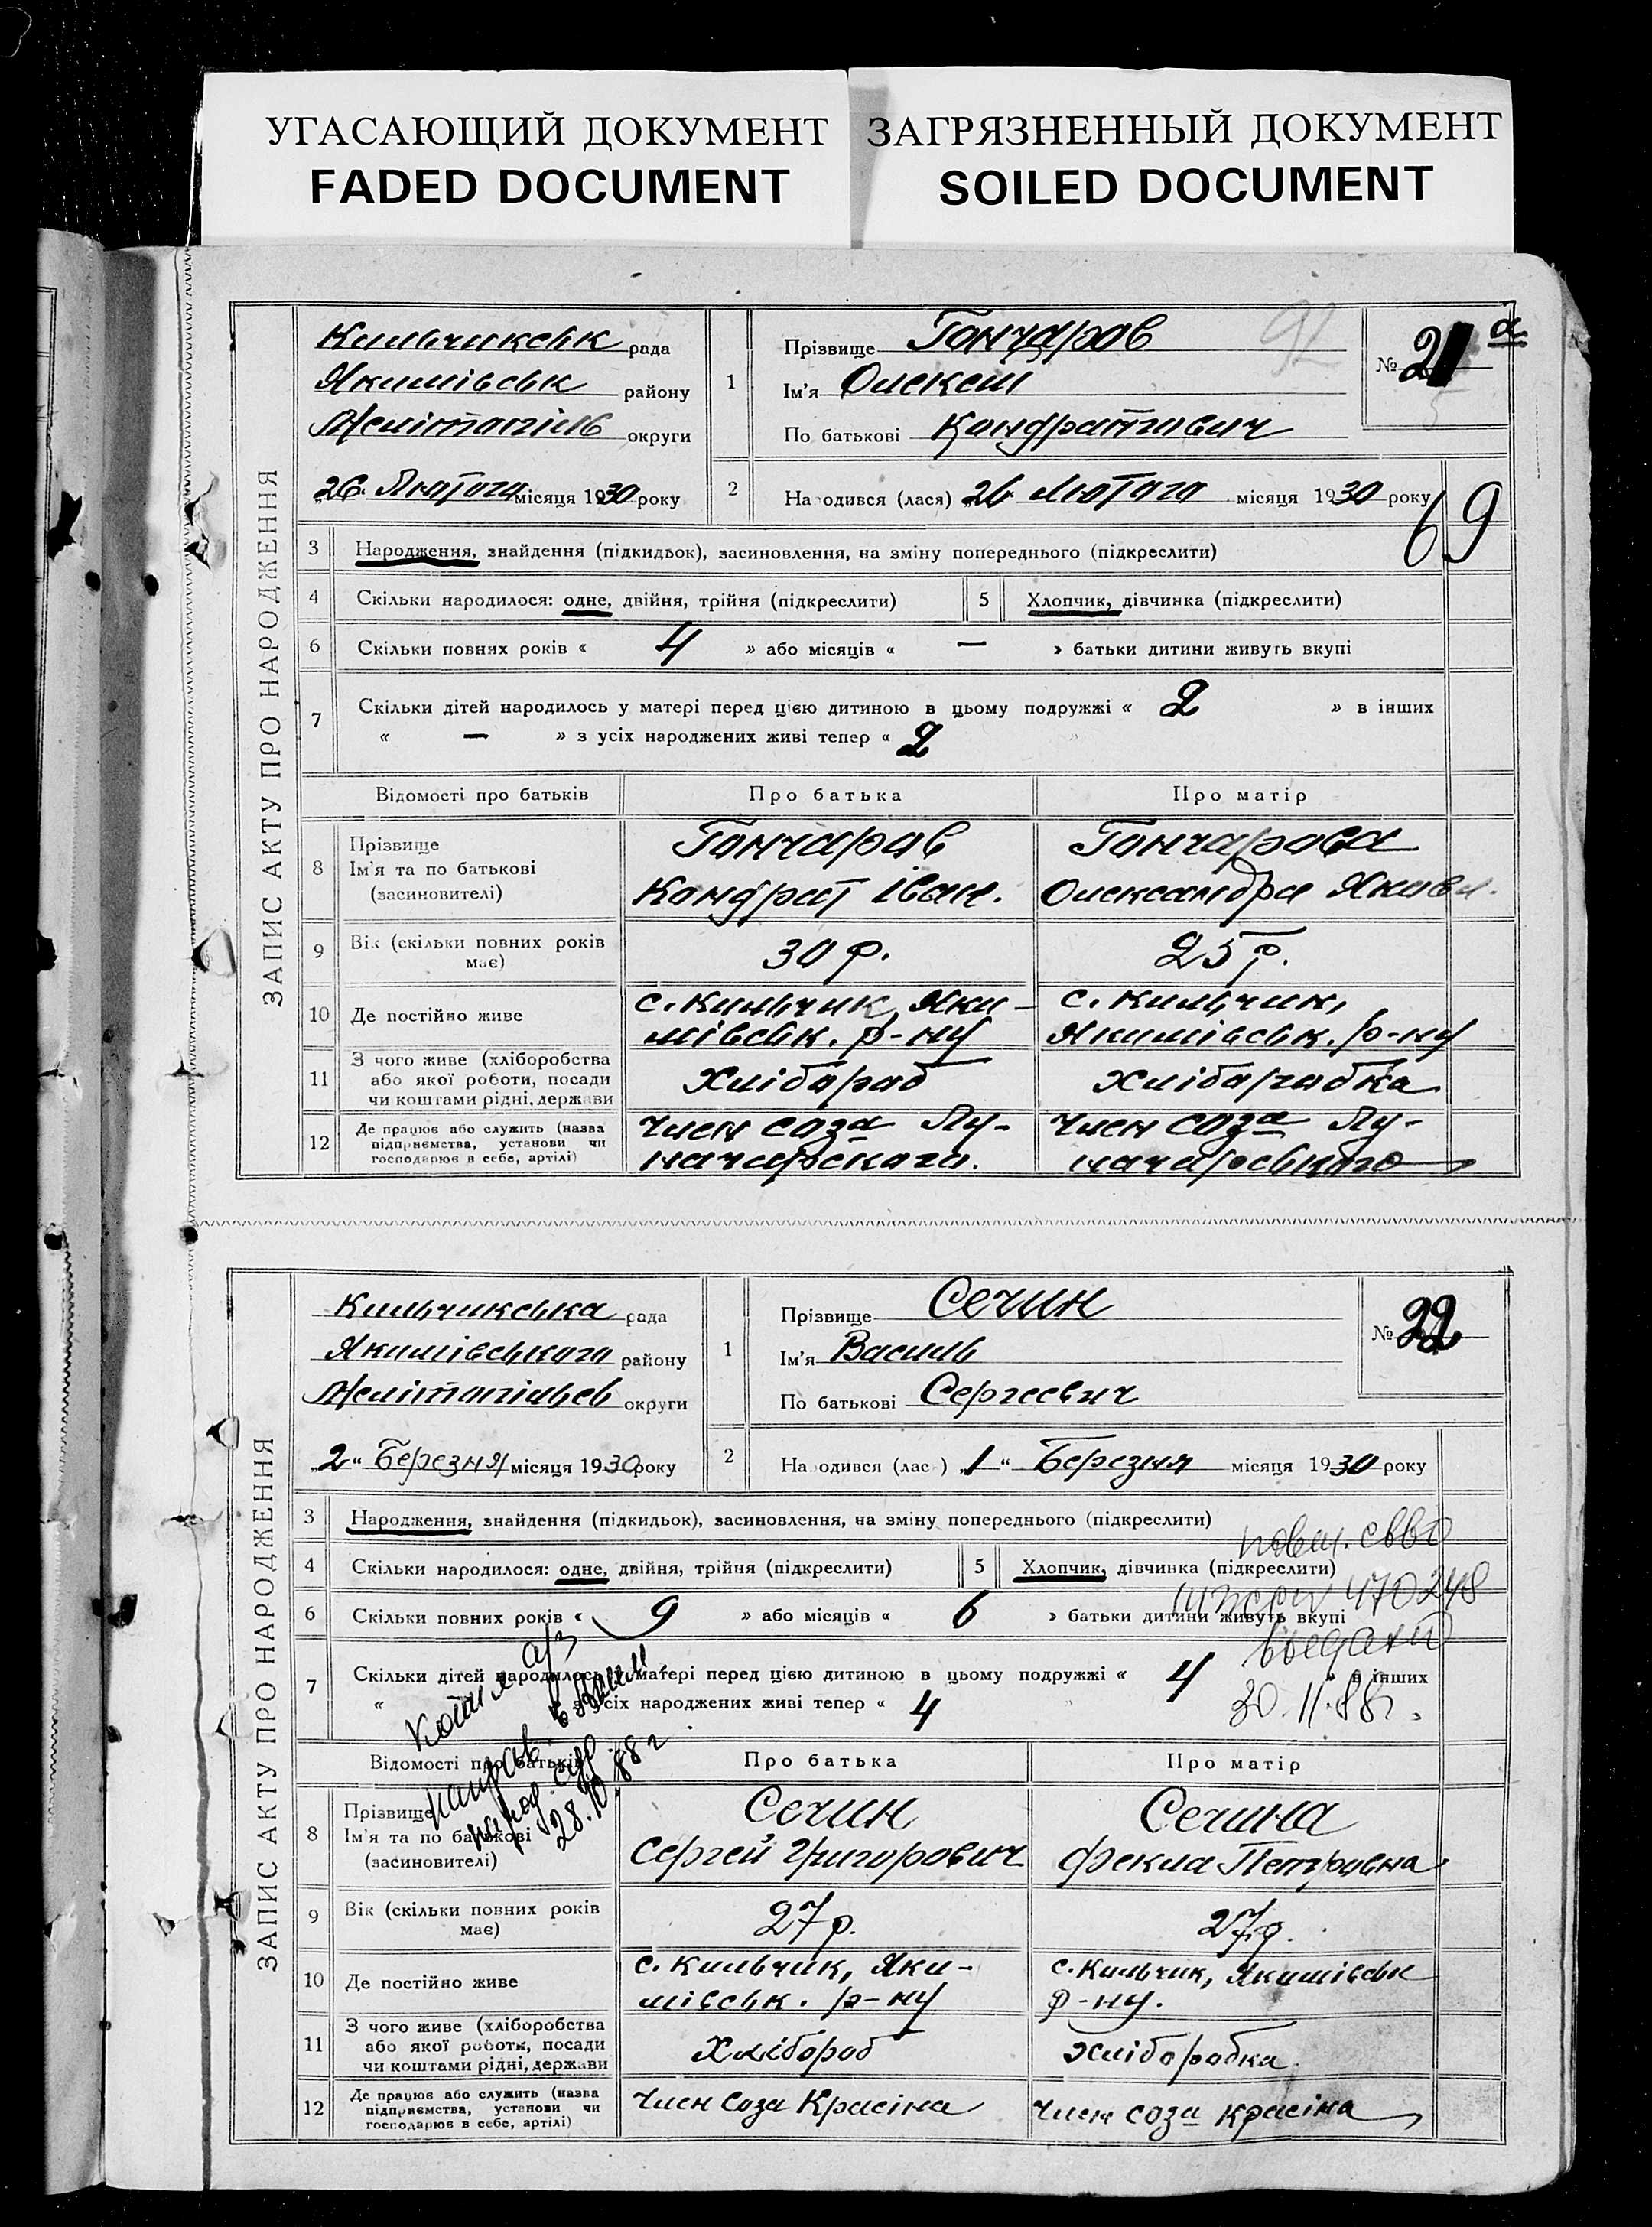 УГАСАЮЩИЙ ДОКУМЕНТ
FADED DOCUMENT
ЗАГРЯЗНЕННЫЙ ДОКУМЕНТ
SOILED DOCUMENT
ЗАПИС АКТУ ПРО НАРОДЖЕННЯ
Кильчикськ рада
Якимівськ району
Мелітопільс округи
26 Лютого місяця 1930 року
92
1 Прізвище Гончаров
Ім'я Олексій
По батькові Кондратович
№ 21 а
2 Народився (лася) „26 Лютого місяця 1930 року
69
3 Народження, знайдення (підкидьок), засиновлення, на зміну попереднього (підкреслити)
4 Скільки народилося: одне, двійня, трійня (підкреслити) 5 Хлопчик, дівчинка (підкреслити)
6 Скільки повних років « 4 » або місяців « — » батьки дитини живуть вкупі
7 Скільки дітей народилось у матері перед цією дитиною в цьому подружжі « 2 » в інших
« — » з усіх народжених живі тепер « 2 »
Відомості про батьків Про батька Про матір
8 Прізвище Ім'я та по батькові (засиновителі)
Гончаров Кондрат Іван.
Гончарова Олександра Яковл.
9 Вік (скільки повних років має) 30 р. 25 р.
10 Де постійно живе
с. Кильчик, Якимівськ. р-ну
с. Кильчик, Якимівськ. р-ну
11 З чого живе (хліборобства або якої роботи, посади чи коштами рідні, держави
Хлібороб
Хліборобка
12 Де працює або служить (назва підприємства, установи чи господарює в себе, артілі)
Член соза Луначарского.
Член соза Луначарського
ЗАПИС АКТУ ПРО НАРОДЖЕННЯ
Кильчикська рада
Якимівського району
Мелітопільсь округи
„2" Березня місяця 1930 року
1 Прізвище Сечин
Ім'я Василь
По батькові Сергеевич
№ 22
2 Народився (лась) „1" Березня місяця 1930 року
3 Народження, знайдення (підкидьок), засиновлення, на зміну попереднього (підкреслити)
4 Скільки народилося: одне, двійня, трійня (підкреслити) 5 Хлопчик, дівчинка (підкреслити)
повт. свво
470248
выдано
30.11.88г.
6 Скільки повних років « 9 » або місяців « 6 » батьки дитини живуть вкупі
7 Скільки дітей народилось у матері перед цією дитиною в цьому подружжі « 4 » в інших
« » з усіх народжених живі тепер « 4 »
Копия а/з
направ.
28.10.88 г
Відомості про батьків Про батька Про матір
8 Прізвище Ім'я та по батькові (засиновителі)
Сечин Сергей Григорович
Сечина Фекла Петровна
9 Вік (скільки повних років має) 27 р. 27 р.
10 Де постійно живе
с. Кильчик, Якимівськ. р-ну
с. Кильчик, Якимівськ р-ну.
11 З чого живе (хліборобства або якої роботи, посади чи коштами рідні, держави
Хлібороб
Хліборобка
12 Де працює або служить (назва підприємства, установи чи господарює в себе, артілі)
Член соза Красіна
Член соза Красіна